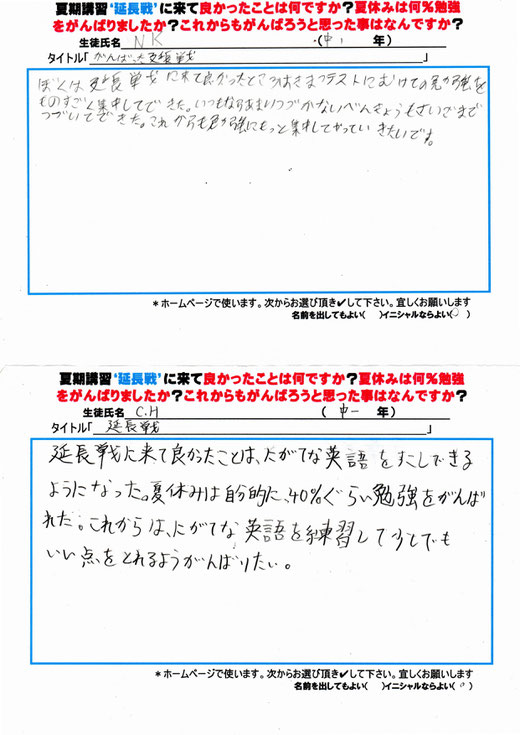 夏期講習‘延長戦’に来て良かったことは何ですか？夏休みは何％勉強
をがんばりましたか？これからもがんばろうと思った事はなんですか？
生徒氏名 NK （中1 年）
タイトル「がんばった延長戦」
ぼくは延長戦に来て良かったところはきまつテストにむけての勉強を
ものすごく集中してできた。いつもならあまりつづかないべんきょうもさいごまで
つづいてできた。これからも勉強にもっと集中してやっていきたいです。
＊ホームページで使います。次からお選び頂き✔して下さい。宜しくお願いします
名前を出してもよい（ ）イニシャルならよい（○ ）
夏期講習‘延長戦’に来て良かったことは何ですか？夏休みは何％勉強
をがんばりましたか？これからもがんばろうと思った事はなんですか？
生徒氏名 C.H （ 中一 年）
タイトル「 延長戦 」
延長戦に来て良かったことは、にがてな英語をすこしできる
ようになった。夏休みは自分的に、40%ぐらい勉強をがんば
れた。これからは、にがてな英語を練習して少しでも
いい点をとれるようがんばりたい。
＊ホームページで使います。次からお選び頂き✔して下さい。宜しくお願いします
名前を出してもよい（ ）イニシャルならよい（○ ）